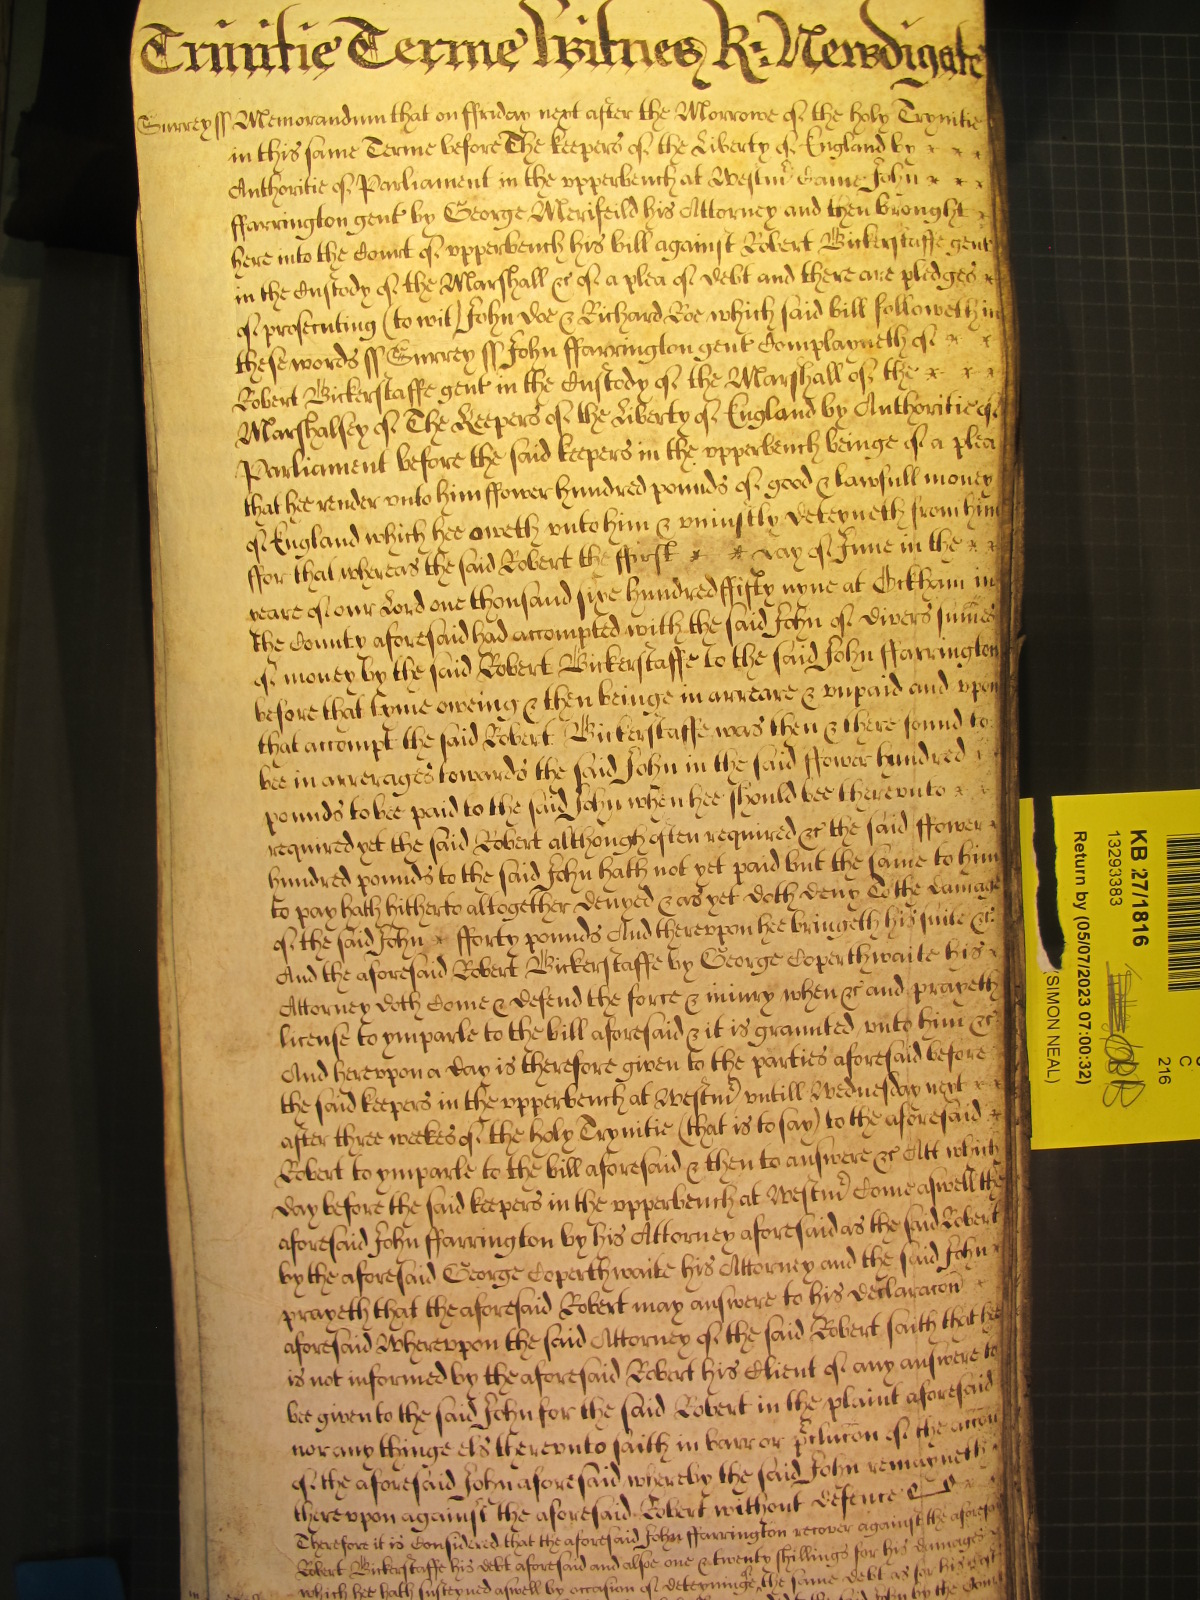 Trinitie Terme Witnes R: Newdigate
Surrey ss Memorandum that on ffriday next after the Morrowe of the holy Trynitie
in this same Terme before The keepers of the Liberty of England by
Authoritie of Parliament in the vpperbench at Westm' Came John
ffarrington gent by George Merifeild his Attorney and then brought
here into the Court of vpperbench his bill against Robert Bickerstaffe gent
in the Custody of the Marshall &c of a plea of debt and there are pledges
of prosecuting (to wit) John Doe & Richard Roe which said bill followeth in
these words ss Surrey ss John ffarrington gent Complayneth of
Robert Bickerstaffe gent in the Custody of the Marshall of the
Marshalsey of The Keepers of the Liberty of England by Authoritie of
Parliament before the said keepers in the vpperbench beinge of a plea
that hee render vnto him ffower hundred pounds of good & lawfull money
of England which hee oweth vnto him & vniustly deteyneth from him
ffor that whereas the said Robert the ffirst day of June in the
yeare of our Lord one thousand sixe hundred ffifty nyne at Ockham in
the County aforesaid had accompted with the said John of divers sumes
of money by the said Robert Bickerstaffe to the said John ffarrington
before that tyme oweing & then beinge in arreare & vnpaid and vpon
that accompt the said Robert Bickerstaffe was then & there found to
bee in arrerages towards the said John in the said ffower hundred
pounds to bee paid to the said John when hee should bee therevnto
required yet the said Robert although often required &c the said ffower
hundred pounds to the said John hath not yet paid but the same to him
to pay hath hitherto altogether denyed & as yet doth deny To the damage
of the said John fforty pounds And therevpon hee bringeth his suite &c
And the aforesaid Robert Bickerstaffe by George Coperthwaite his
Attorney doth Come & defend the force & iniury when &c and prayeth
license to ymparle to the bill aforesaid & it is graunted vnto him &c
And herevpon a day is therefore given to the parties aforesaid before
the said keepers in the vpperbench at Westm' vntill Wednesday next
after three weekes of the holy Trynitie (that is to say) to the aforesaid
Robert to ymparle to the bill aforesaid & then to answere &c Att which
day before the said keepers in the vpperbench at Westm' Come aswell the
aforesaid John ffarrington by his Attorney aforesaid as the said Robert
by the aforesaid George Coperthwaite his Attorney and the said John
prayeth that the aforesaid Robert may answere to his declaracon
aforesaid Wherevpon the said Attorney of the said Robert saith that hee
is not informed by the aforesaid Robert his Client of any answere to
bee given to the said John for the said Robert in the plaint aforesaid
nor any thinge els therevnto saith in barr or p'clucon of the accon
of the aforesaid John aforesaid whereby the said John remayneth
therevpon against the aforesaid Robert without defence
Therefore it is Considered that the aforesaid John ffarrington recover against the aforesaid
Robert Bickerstaffe his debt aforesaid and alsoe one & twenty shillings for his damages
which hee hath susteyned aswell by occasion of deteyninge of the same debt as for his cost
KB 27/1816
13293383
Return by (05/07/2023 07:00:32)
(SIMON NEAL)
C
216